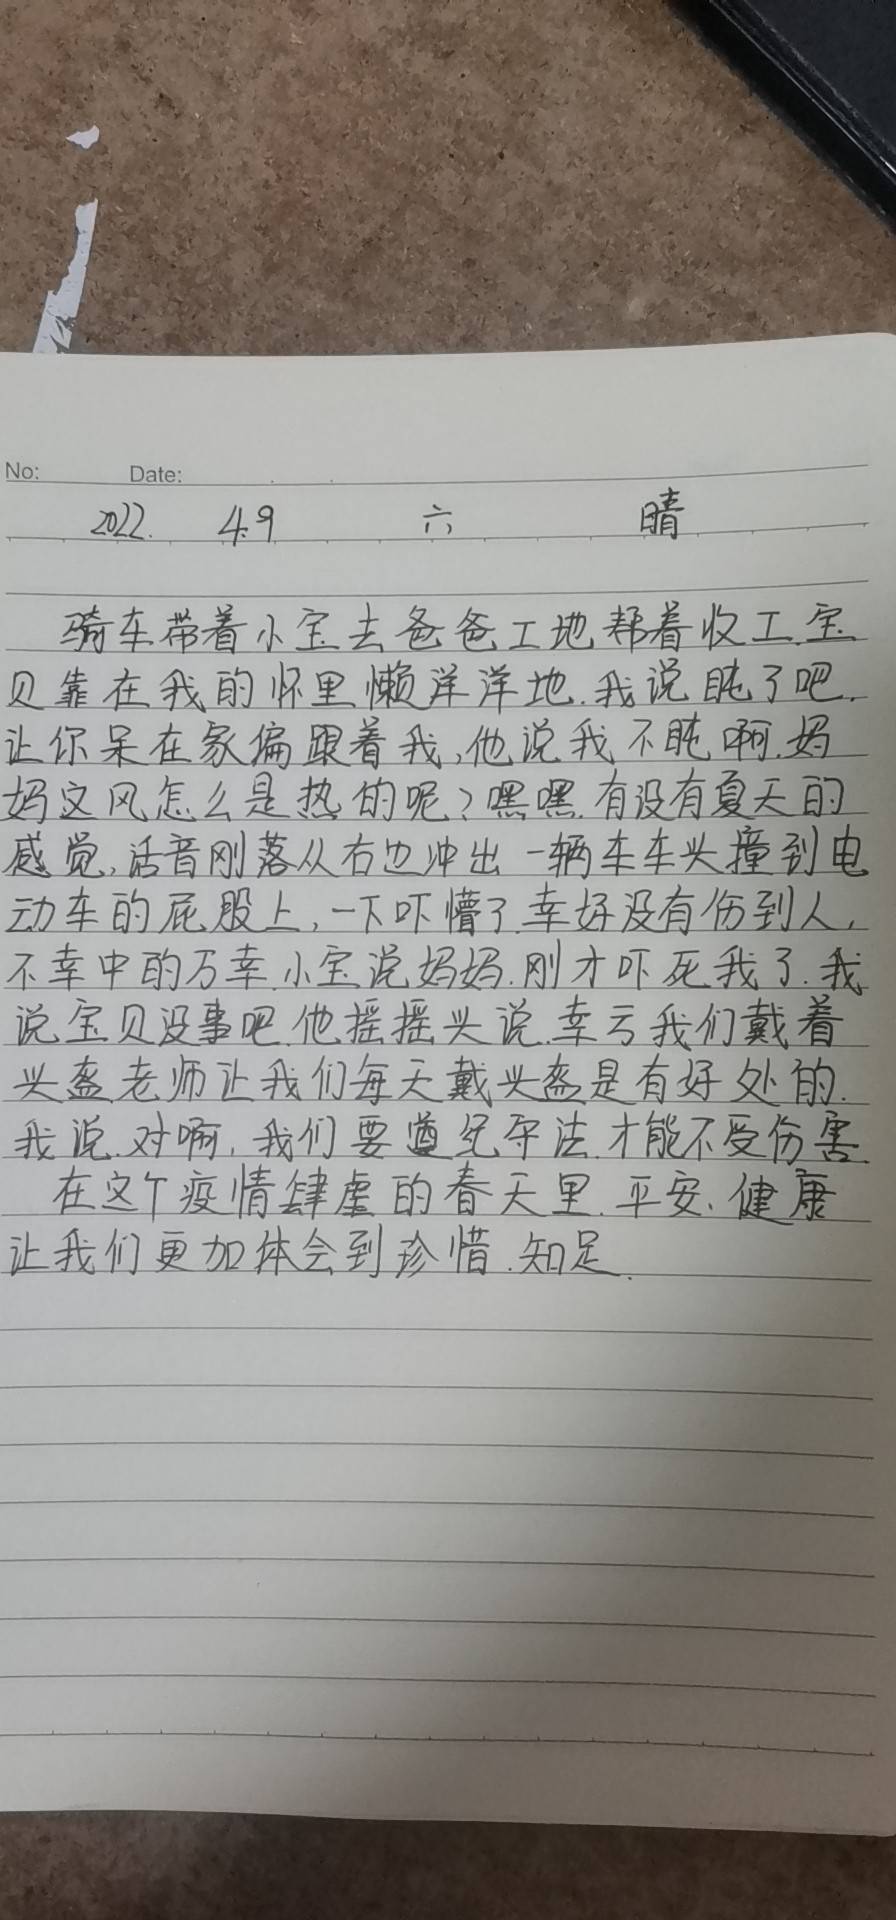 No: Date:
2022. 4.9 六 晴
骑车带着小宝去爸爸工地帮着收工.宝
贝靠在我的怀里懒洋洋地.我说盹了吧.
让你呆在家偏跟着我,他说我不盹啊.妈
妈这风怎么是热的呢?嘿嘿.有没有夏天的
感觉,话音刚落从右边冲出一辆车车头撞到电
动车的屁股上,一下吓懵了.幸好没有伤到人,
不幸中的万幸.小宝说妈妈.刚才吓死我了.我
说宝贝没事吧.他摇摇头说.幸亏我们戴着
头盔老师让我们每天戴头盔是有好处的.
我说.对啊,我们要遵纪守法.才能不受伤害.
在这个疫情肆虐的春天里.平安、健康
让我们更加体会到珍惜.知足.